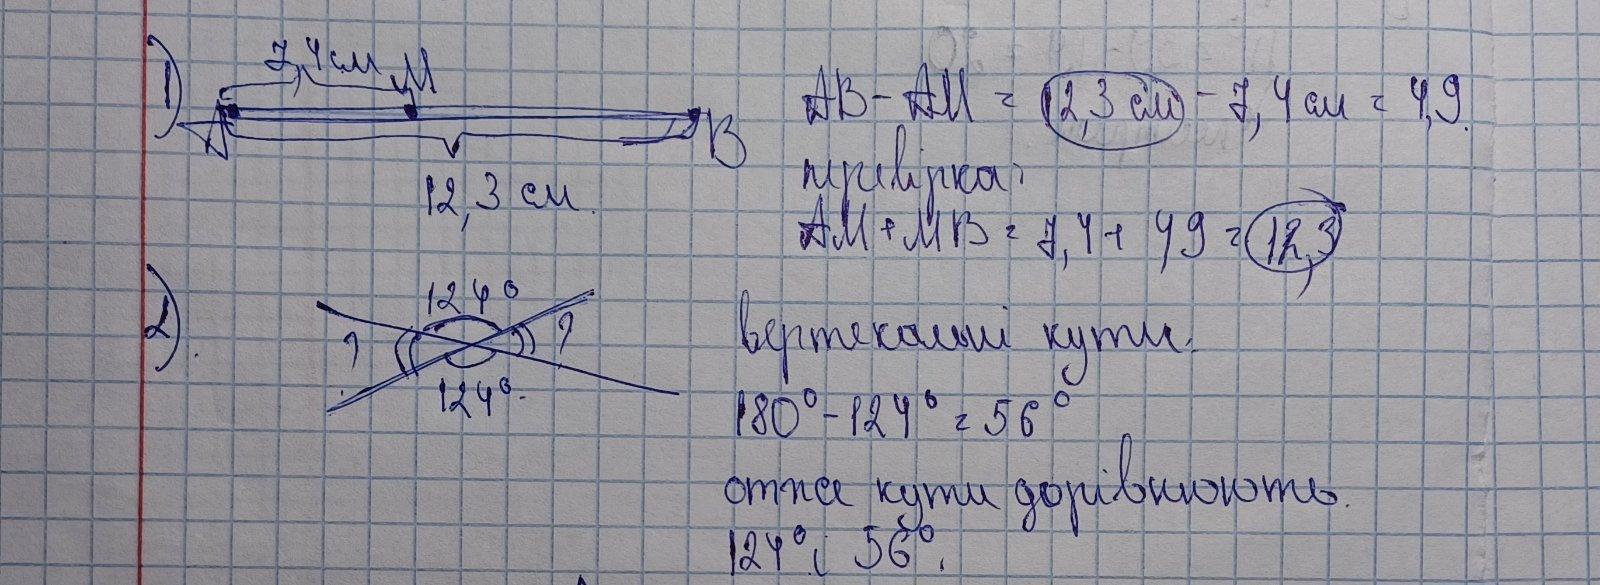 1)
7,4 см
A M B
12,3 см.
AB - AM = 12,3 см - 7,4 см = 4,9.
перевірка:
AM + MB = 7,4 + 4,9 = 12,3
2).
124°
? ?
124°.
вертекальні кути.
180° - 124° = 56°
отже кути дорівнюють.
124° і 56°.